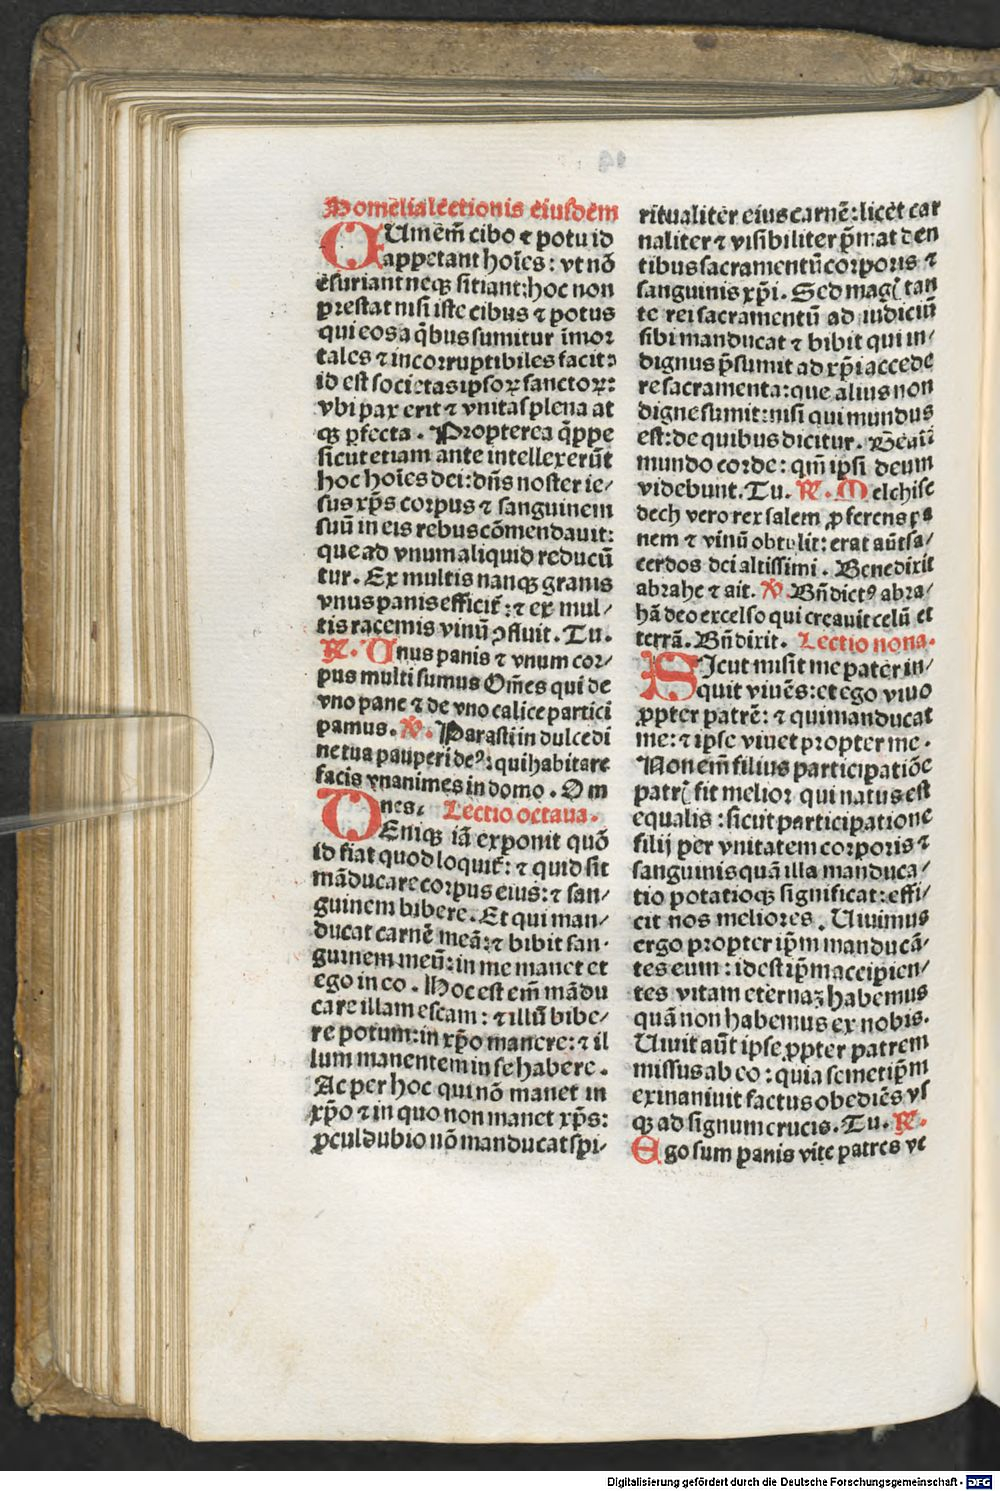 Homelia lectionis eiusdem
CUm em̄ cibo ⁊ potu id
appetant hoīes: vt nō
esuriant neqꝫ sitiant: hoc non
prestat nisi iste cibus ⁊ potus
qui eos a q̄bus sumitur īmor
tales ⁊ incorruptibiles facit:
id est societas ipsoꝝ sanctoꝝ:
vbi pax erit ⁊ vnitas plena at
qꝫ ꝑfecta. Propterea q̄ppe
sicut etiam ante intellexerūt
hoc hoīes dei: dn̄s noster ie/
sus xp̄s corpus ⁊ sanguinem
suū in eis rebus cōmendauit:
que ad vnum aliquid reducū
tur. Ex multis nanqꝫ granis
vnus panis efficit᷑: ⁊ ex mul/
tis racemis vinū ꝯfluit. Tu.
R̷. Unus panis ⁊ vnum cor/
pus multi sumus Om̄es qui de
vno pane ⁊ de vno calice partici
pamus. V̷. Parasti in dulcedi
ne tua pauperi deꝰ: qui habitare
facis vnanimes in domo. Om
nes. Lectio octaua.
DEniqꝫ iā exponit quō
id fiat quod loquit᷑: ⁊ quid sit
māducare corpus eius: ⁊ san/
guinem bibere. Et qui man/
ducat carnē meā: ⁊ bibit san/
guinem meū: in me manet et
ego in eo. Hoc est em̄ mādu
care illam escam: ⁊ illū bibe/
re potum: in xp̄o manere: ⁊ il
lum manentem in se habere.
Ac per hoc qui nō manet in
xp̄o ⁊ in quo non manet xp̄s:
ꝓculdubio nō manducat spi/
ritualiter eius carnē: licet car
naliter ⁊ visibiliter p̄mat den
tibus sacramentū corporis ⁊
sanguinis xp̄i. Sed magꝭ tan
te rei sacramentū ad iudiciū
sibi manducat ⁊ bibit qui in/
dignus p̄sumit ad xp̄i accede
re sacramenta: que alius non
digne sumit: nisi qui mundus
est: de quibus dicitur. Beati
mundo corde: qm̄ ipsi deum
videbunt. Tu. R̷. Melchise
dech vero rex salem ꝓferens pa
nem ⁊ vinū obtulit: erat aūt sa/
cerdos dei altissimi. Benedixit
abrahe ⁊ ait. V̷. Bn̄dictꝰ abra/
hā deo excelso qui creauit celū et
terrā. Bn̄dixit. Lectio nona.
SIcut misit me pater in/
quit viuēs: et ego viuo
ꝓpter patrē: ⁊ qui manducat
me: ⁊ ipse viuet propter me.
Non em̄ filius participatiōe
patrꝭ fit melior qui natus est
equalis: sicut participatione
filij per vnitatem corporis ⁊
sanguinis quā illa manduca/
tio potatioqꝫ significat: effi/
cit nos meliores. Uiuimus
ergo propter ip̄m manducā/
tes eum: id est ip̄m accipien/
tes vitam eternaꝫ habemus
quā non habemus ex nobis.
Uiuit aūt ipse ꝓpter patrem
missus ab eo: quia semetip̄m
exinaniuit factus obediēs vs
qꝫ ad signum crucis. Tu. R̷.
Ego sum panis vite patres ve
Digitalisierung gefördert durch die Deutsche Forschungsgemeinschaft - DFG